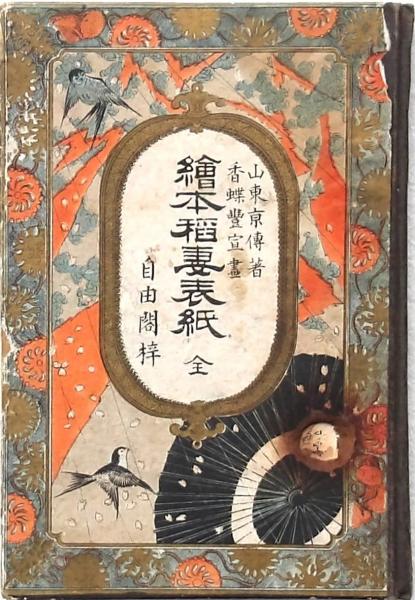 山東京傳著
香蝶豐宣畫
繪本稻妻表紙 全
自由閣梓